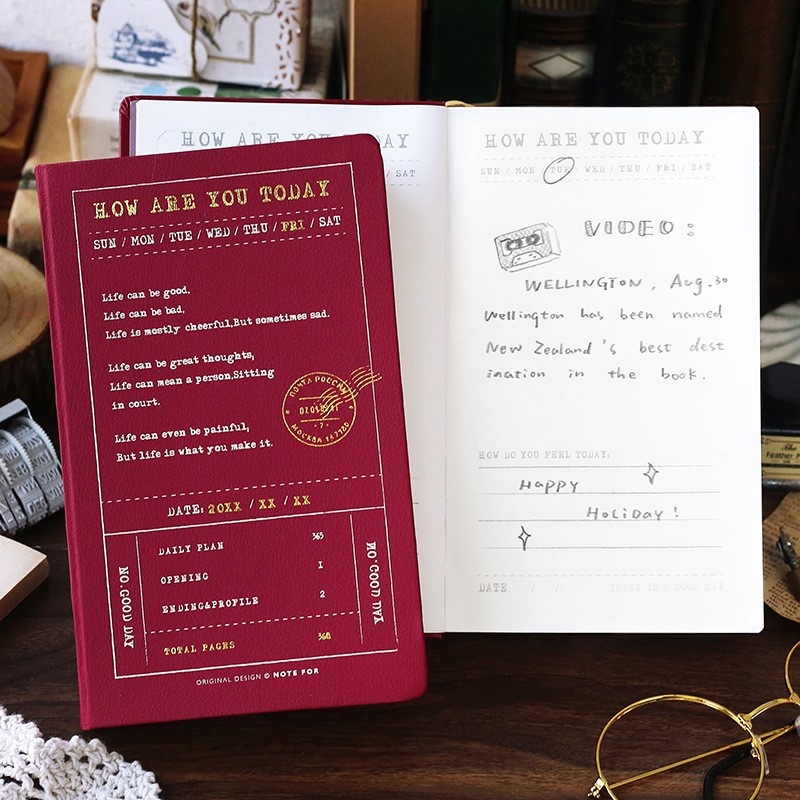 HOW ARE YOU TODAY
SUN / MON / TUE / WED / THU / FRI / SAT
Life can be good,
Life can be bad,
Life is mostly cheerful,But sometimes sad.
Life can be great thoughts,
Life can mean a person,Sitting
in court.
Life can even be painful,
But life is what you make it.
ПОЧТА РОССИИ
МОСКВА
DATE: 20XX / XX / XX
NO.GOOD DAY
DAILY PLAN 365
OPENING 1
ENDING&PROFILE 2
TOTAL PAGES 368
NO.GOOD DAY
ORIGINAL DESIGN © NOTE FOR
HOW ARE YOU TODAY
/ SAT
HOW ARE YOU TODAY
SUN / MON / TUE / WED / THU / FRI / SAT
VIDEO :
WELLINGTON, Aug.30
Wellington has been named
New Zealand's best dest
ination in the book.
HOW DO YOU FEEL TODAY:
Happy
Holiday!
DATE: / / TODAY IS A GOOD DAY
The
Feather P